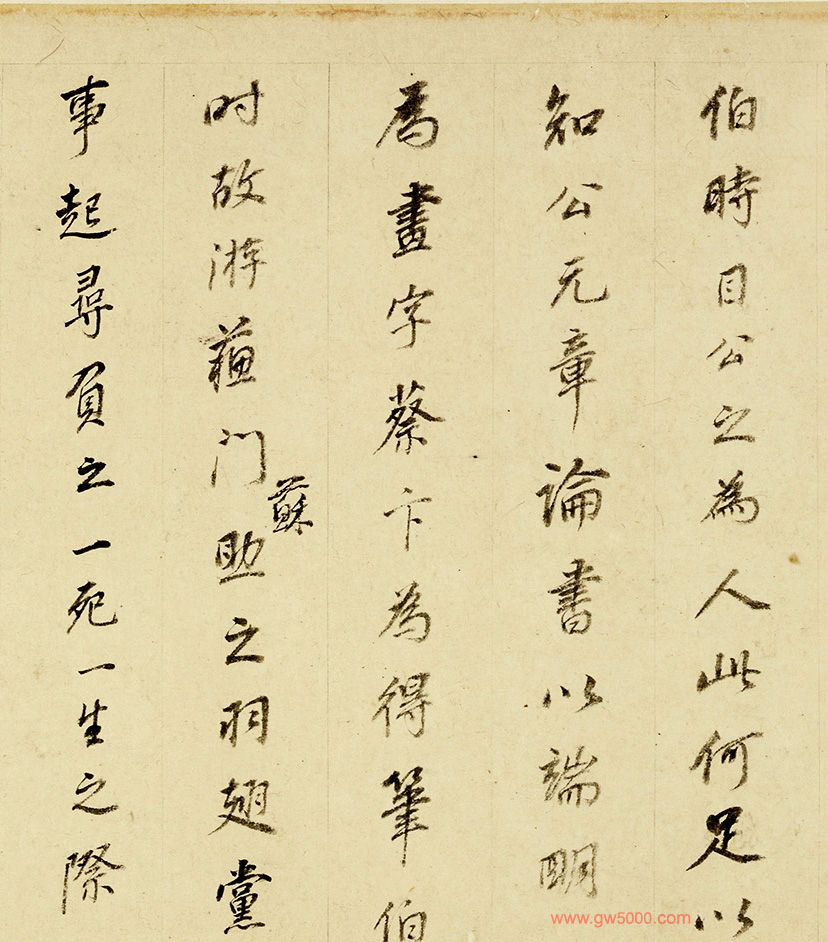 伯時目公之為人此何足以
知公元章論書以端明
為畫字蔡卞為得筆伯
時故游蘓門助之羽翅黨
蘇
事起尋負之一死一生之際
www.gw5000.com